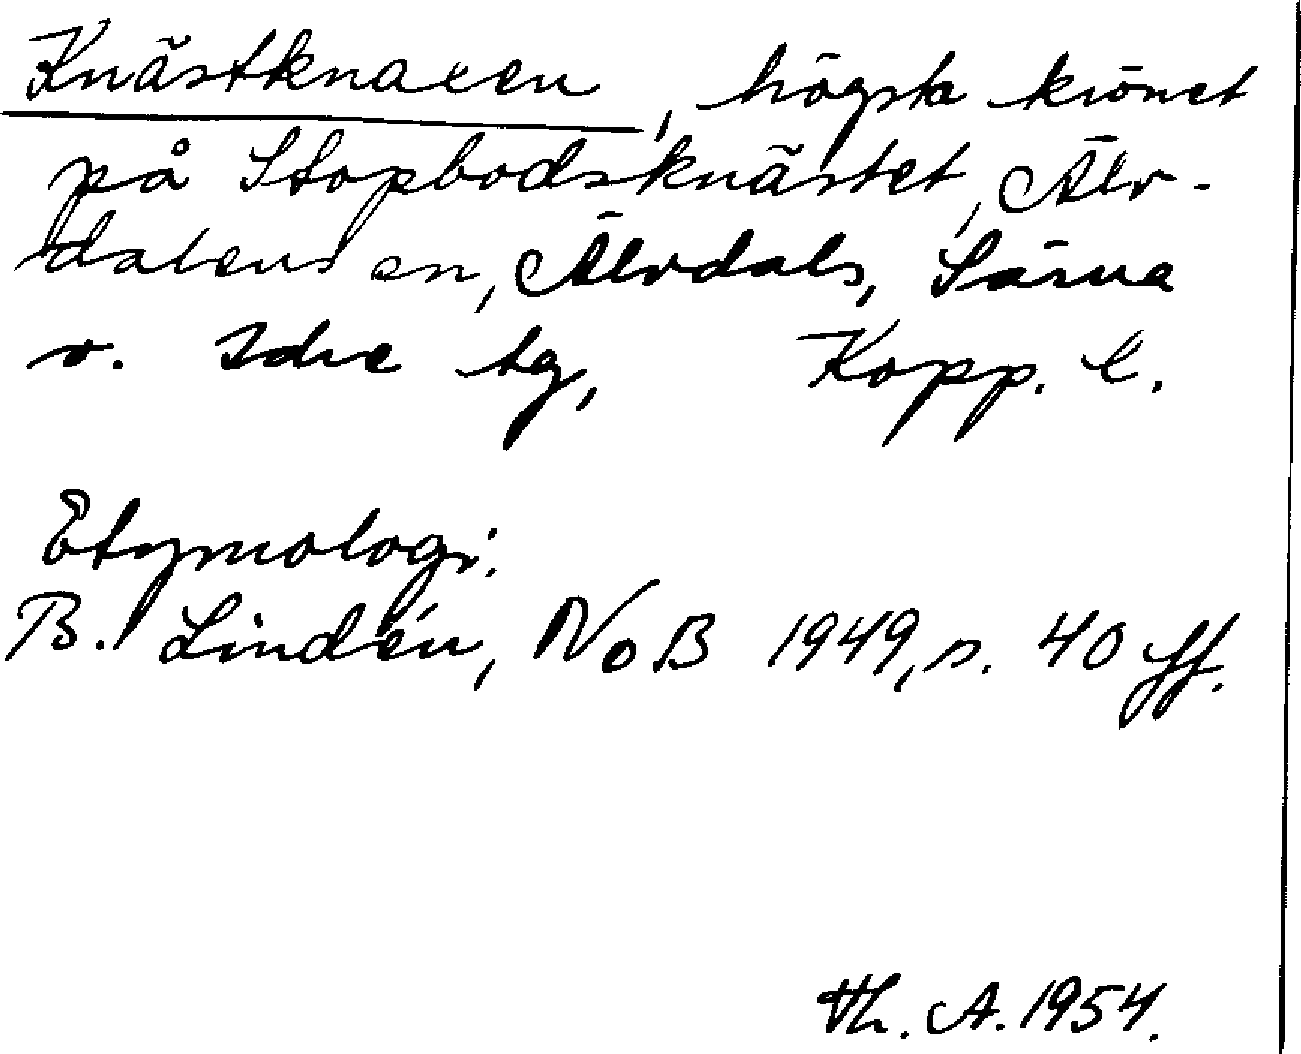 Knästknallen, högsta krönet
på Stopbodsknästet, Älv-
dalens sn, Älvdals, Särna
o. Idre tg, Kopp. l.
Etymologi:
B. Lindén, NoB 1949, s. 40 ff.
Th. A. 1954.